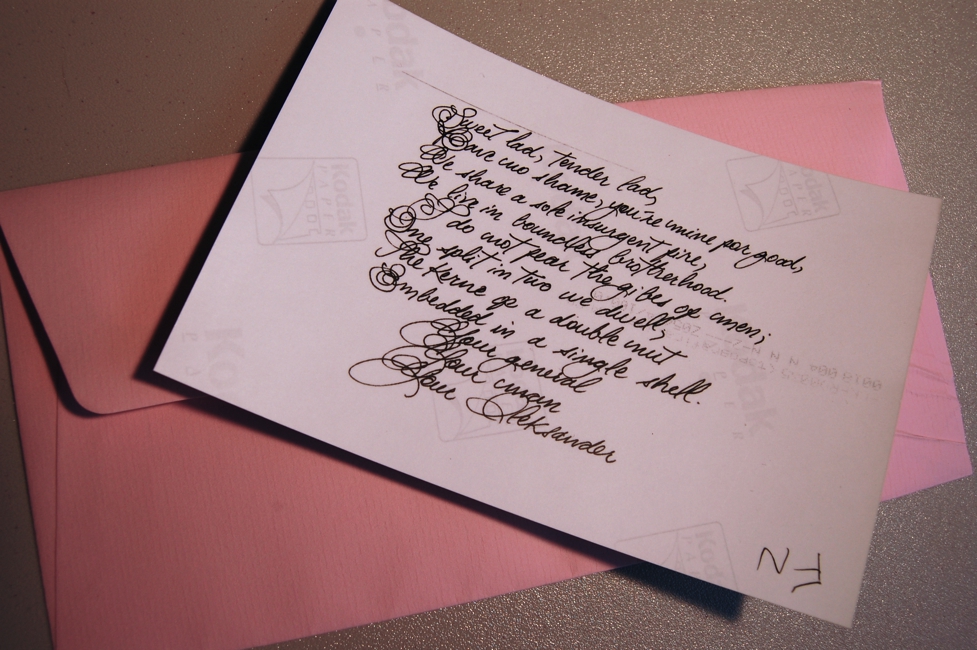 Sweet lad, Tender lad,
Have no shame, you're mine for good,
We share a sole insurgent fire,
We live in boundless brotherhood.
I do not fear the gibes of men;
One split in two we dwell,
The kernel of a double nut
Embedded in a single shell.
Your general
Your man
Your Aleksander
Kodak
PAPER
Kodak
PAPER
Kodak
PAPER
Kodak
Kodak